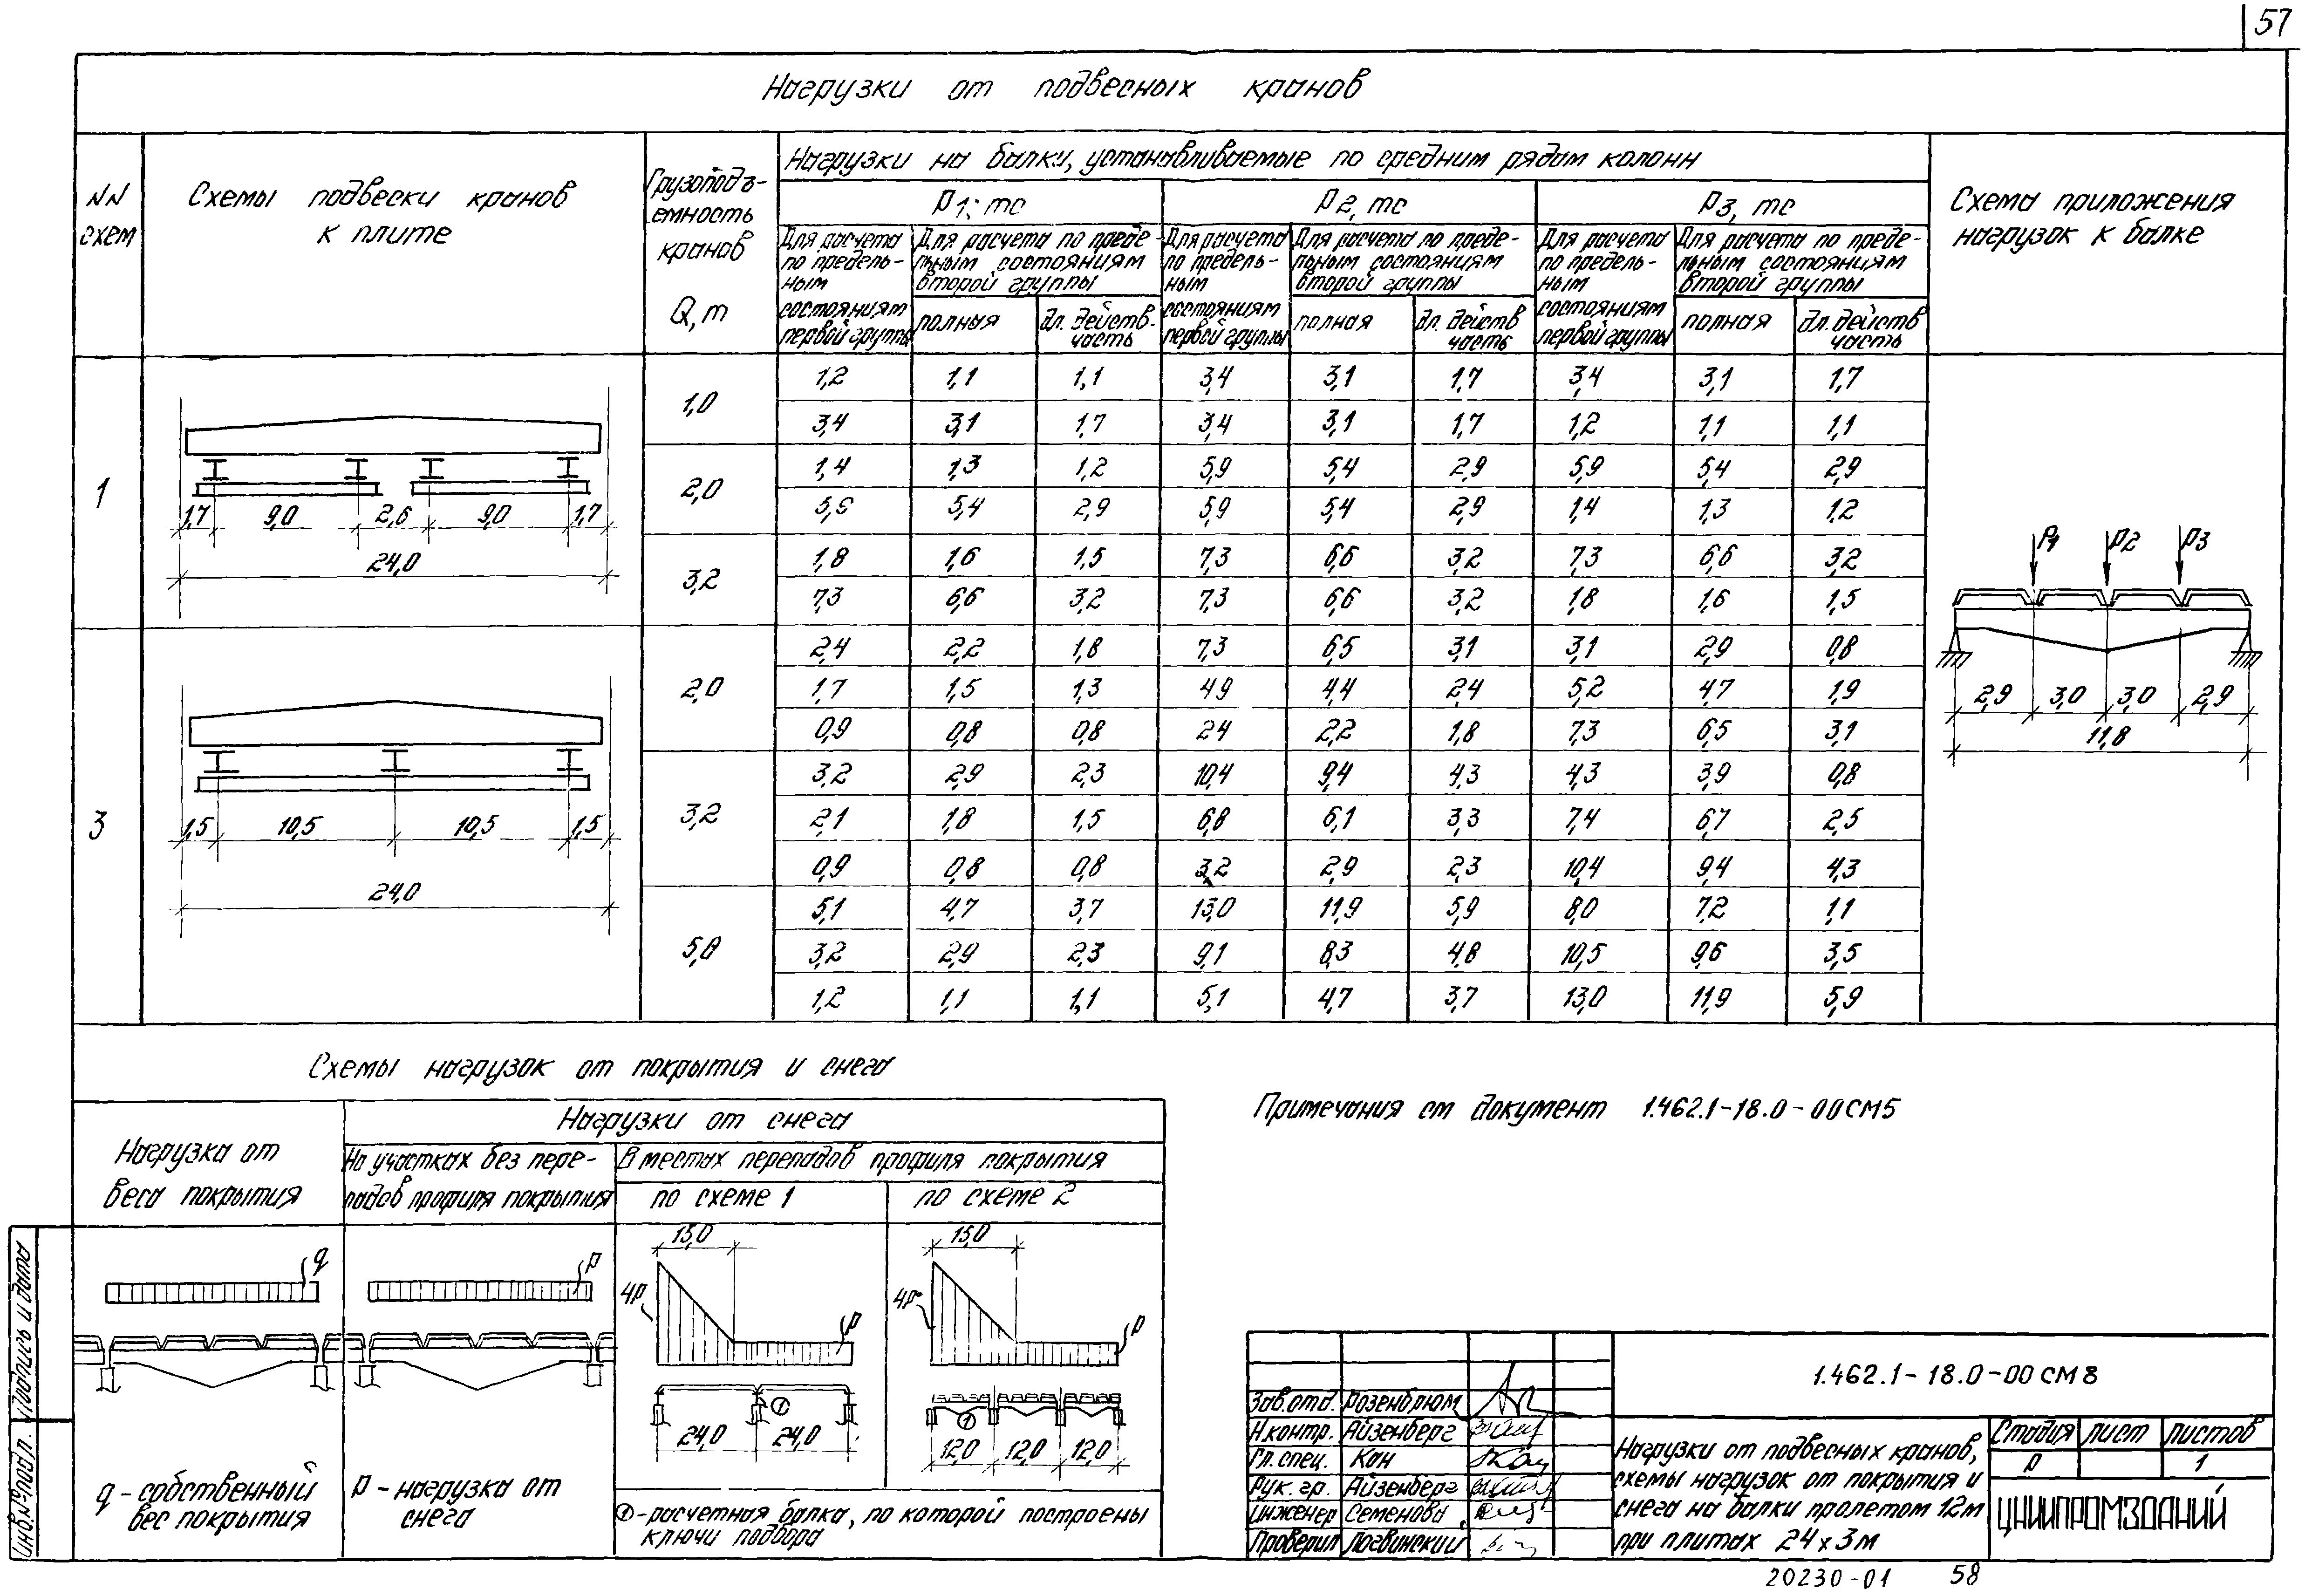 57
Нагрузки от подвесных кранов
NN схем
Схемы подвески кранов
к плите
Грузоподъ-
емность
кранов
Q, т
Нагрузки на балку, устанавливаемые по средним рядам колонн
Р1; тс
Р2, тс
Р3, тс
Для расчета по предель- ным состояниям первой группы
Для расчета по преде- льным состояниям второй группы
полная
дл. действ. часть
Для расчета по предель- ным состояниям первой группы
Для расчета по преде- льным состояниям второй группы
полная
дл. действ часть
Для расчета по предель- ным состояниям первой группы
Для расчета по преде- льным состояниям второй группы
полная
дл. действ часть
Схема приложения
нагрузок к балке
1
1,7 9,0 2,6 9,0 1,7
24,0
1,0
1,2 1,1 1,1 3,4 3,1 1,7 3,4 3,1 1,7
3,4 3,1 1,7 3,4 3,1 1,7 1,2 1,1 1,1
2,0
1,4 1,3 1,2 5,9 5,4 2,9 5,9 5,4 2,9
5,9 5,4 2,9 5,9 5,4 2,9 1,4 1,3 1,2
3,2
1,8 1,6 1,5 7,3 6,6 3,2 7,3 6,6 3,2
7,3 6,6 3,2 7,3 6,6 3,2 1,8 1,6 1,5
3
1,5 10,5 10,5 1,5
24,0
2,0
2,4 2,2 1,8 7,3 6,5 3,1 3,1 2,9 0,8
1,7 1,5 1,3 4,9 4,4 2,4 5,2 4,7 1,9
0,9 0,8 0,8 2,4 2,2 1,8 7,3 6,5 3,1
3,2
3,2 2,9 2,3 10,4 9,4 4,3 4,3 3,9 0,8
2,1 1,8 1,5 6,8 6,1 3,3 7,4 6,7 2,5
0,9 0,8 0,8 3,2 2,9 2,3 10,4 9,4 4,3
5,0
5,1 4,7 3,7 13,0 11,9 5,9 8,0 7,2 1,1
3,2 2,9 2,3 9,1 8,3 4,8 10,5 9,6 3,5
1,2 1,1 1,1 5,1 4,7 3,7 13,0 11,9 5,9
Р1 Р2 Р3
2,9 3,0 3,0 2,9
11,8
Схемы нагрузок от покрытия и снега
Нагрузка от
веса покрытия
Нагрузки от снега
На участках без пере-
падов профиля покрытия
В местах перепадов профиля покрытия
по схеме 1
по схеме 2
q
р
15,0
4р
р
24,0 24,0
1
15,0
4р
р
1
12,0 12,0 12,0
q - собственный
вес покрытия
р - нагрузка от
снега
1 - расчетная балка, по которой построены
ключи подбора
Примечания см документ 1.462.1-18.0-00СМ5
Зав.отд. Розенблюм
Н.контр. Айзенберг
Гл. спец. Кан
Рук. гр. Айзенберг
Инженер Семенова
Проверил Логвинский
1.462.1-18.0-00 СМ 8
Нагрузки от подвесных кранов,
схемы нагрузок от покрытия и
снега на балки пролетом 12м
при плитах 24х3м
Стадия лист листов
Р 1
ЦНИИПРОМЗДАНИЙ
20230-01 58
Инв.№подл. Подпись и дата